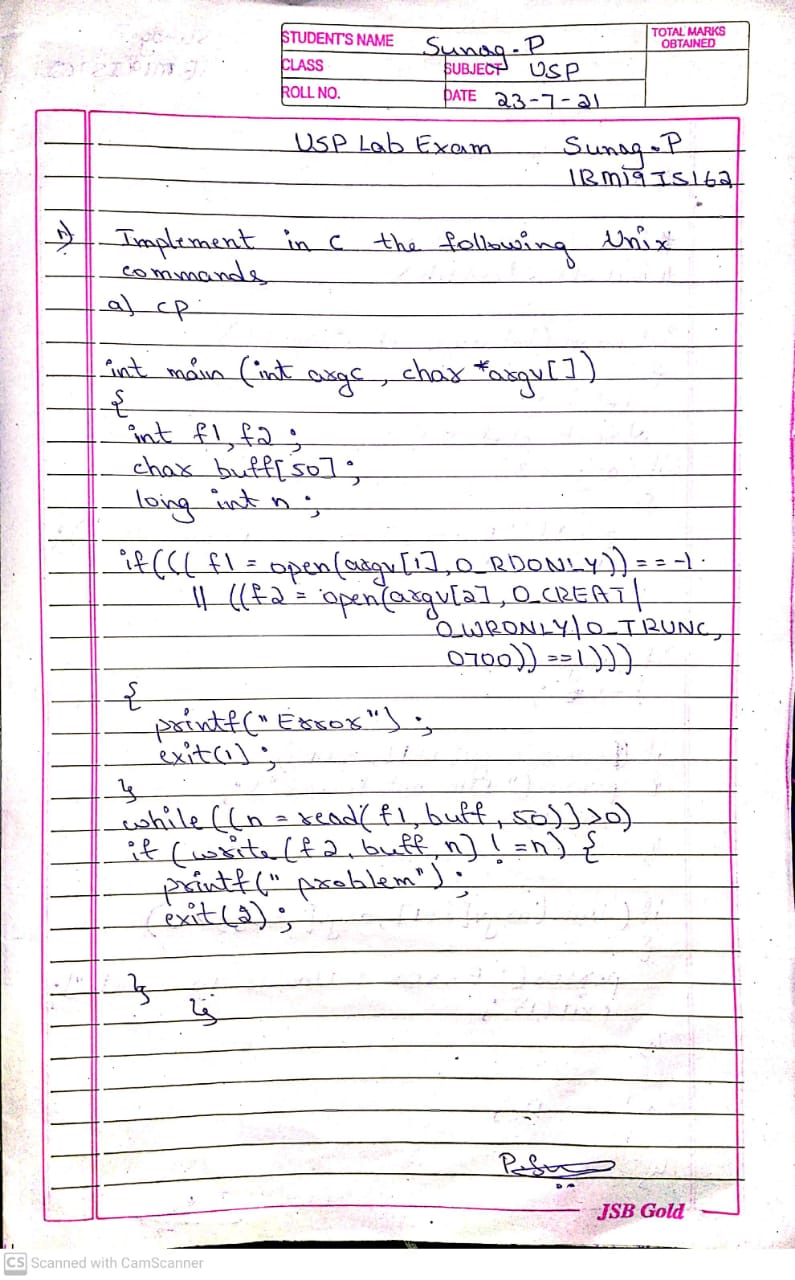 STUDENT'S NAME Sunag.P
TOTAL MARKS OBTAINED
CLASS SUBJECT USP
ROLL NO. DATE 23-7-21
USP Lab Exam Sunag.P
1BM19IS162
Implement in C the following Unix
commands
a) cp
int main (int argc, char *argv[])
{
int f1, f2;
char buff[50];
long int n;
if((( f1 = open(argv[1], O_RDONLY)) == -1
|| ((f2 = open(argv[2], O_CREAT|
O_WRONLY|O_TRUNC,
0700)) ==1)))
{
printf("Error");
exit(1);
}
while ((n = read(f1, buff, 50))>0)
if (write(f2, buff, n) != n) {
printf("problem");
exit(2);
}
}
JSB Gold
CS Scanned with CamScanner